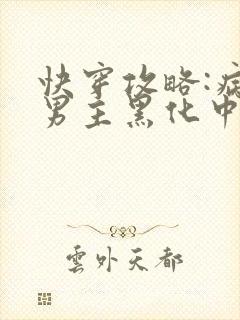 快穿攻略:病
男主黑化中
雲外天都